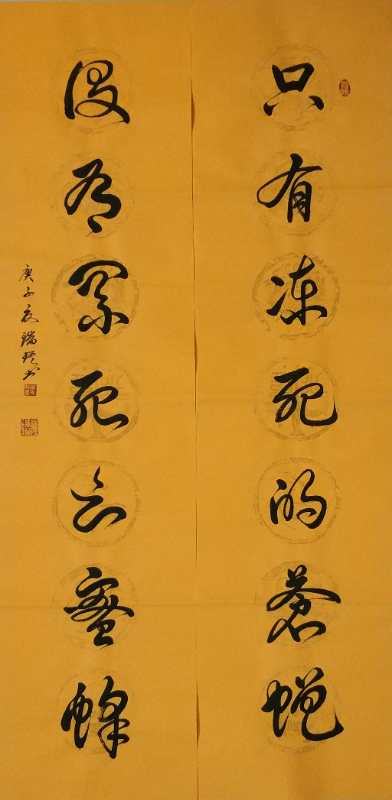 只有冻死的苍蝇
没有累死的蜜蜂
庚子夏瑞琪书